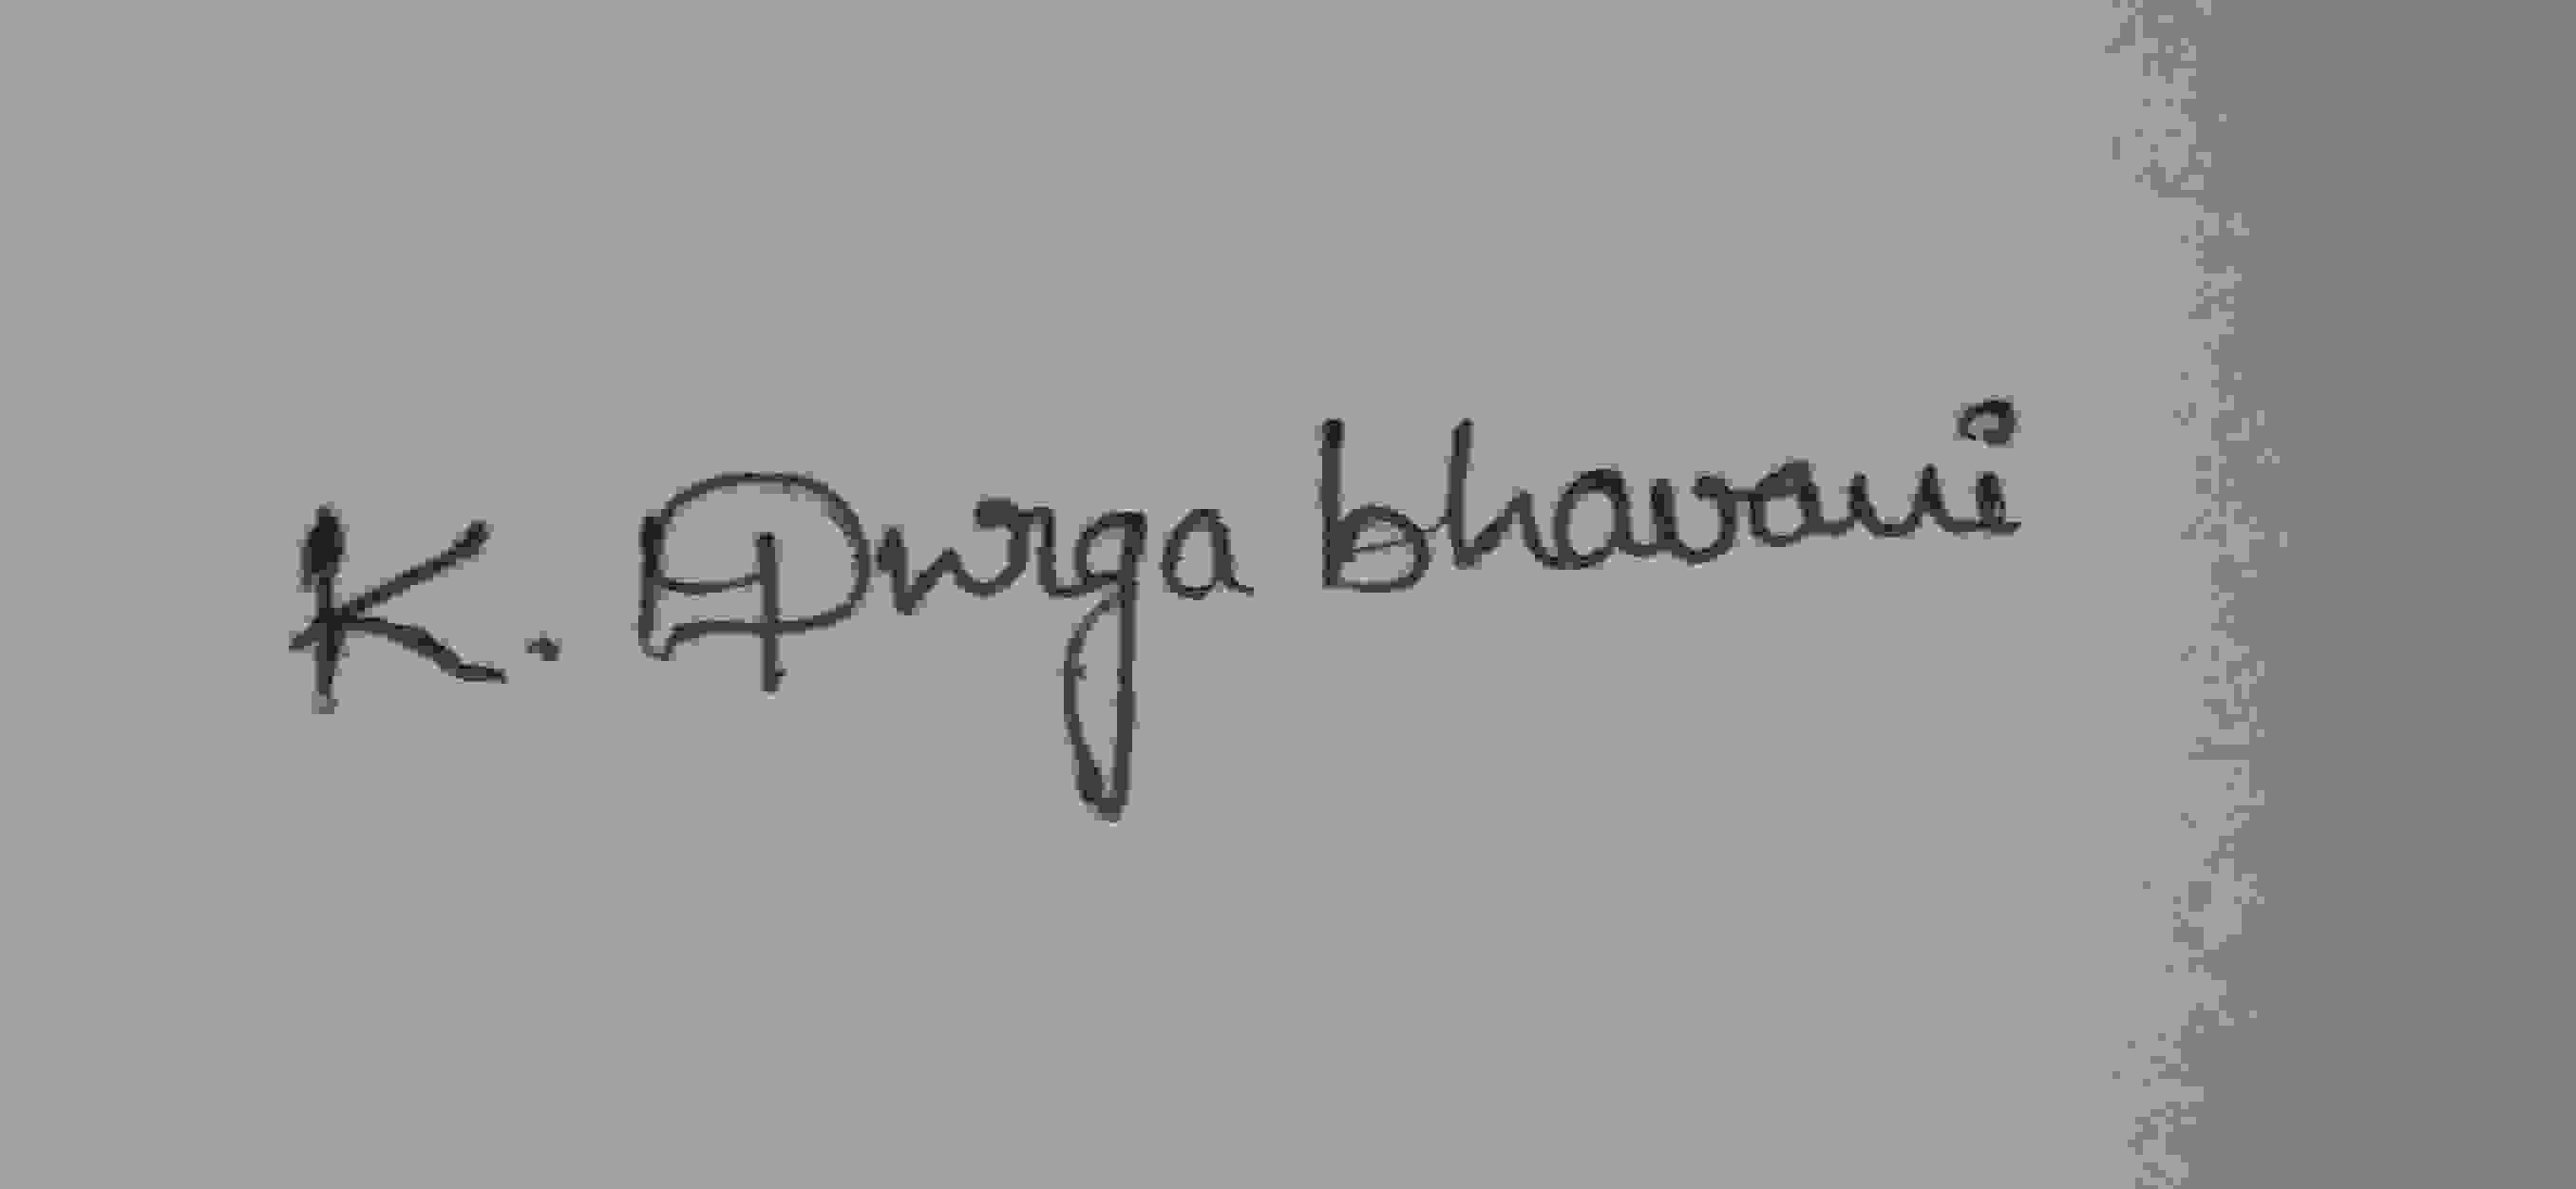 K. Durga bhavani